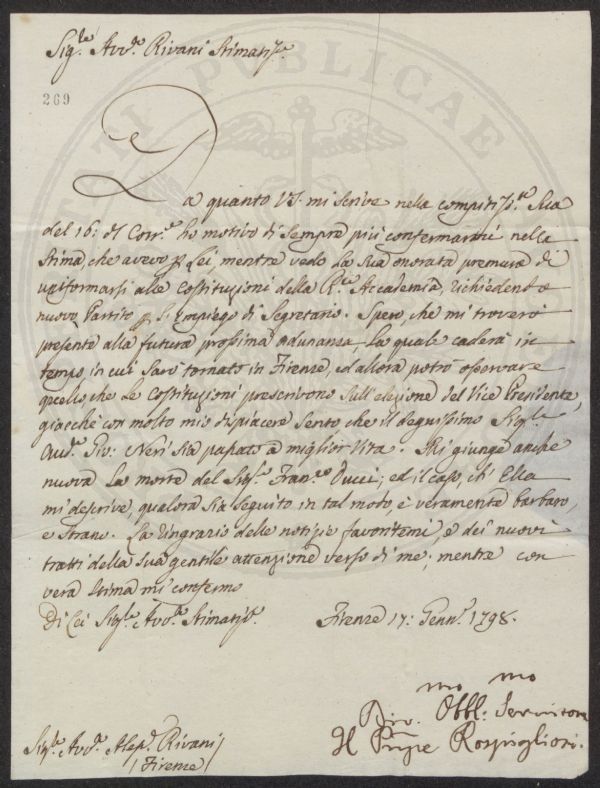 Sig.re Avv.to Rivani Stimatis.e
269
Da quanto VS. mi scrive nella compitis.ma Sua
del 16: del Corr.e ho motivo di sempre più confermarmi nella
Stima, che avevo p Lei, mentre vedo la Sua onorata premura di
uniformarsi alle Costituzioni della R.le Accademia, richiedendo
nuovo Partito p l'Impiego di Segretario. Spero, che mi troverò
presente alla futura prossima adunanza la quale caderà in
tempo in cui sarò tornato in Firenze, ed allora potrò osservare
quello, che le Costituzioni prescrivono sull'elezione del Vice Presidente,
giacchè con molto mio dispiacere sento che il degnissimo Sig.re
Aud.e Gio: Neri sia passato a miglior vita. Mi giunge anche
nuova la morte del Sig.e Fran.co Ducci; ed il caso, ch'Ella
mi descrive, qualora sia seguito in tal modo, è veramente barbaro,
e strano. La ringrazio delle notizie favoritemi, e dei nuovi
tratti della Sua gentile attenzione verso di me; mentre con
vera stima mi confermo
Di Lei Sig.re Avv.to Stimatis.e Firenze 17: Genn.o 1798.
Div.mo Obbl.mo Servitore
Il Pnpe Rospigliosi.
Sig.re Avv.o Aless.o Rivani
(Firenze)